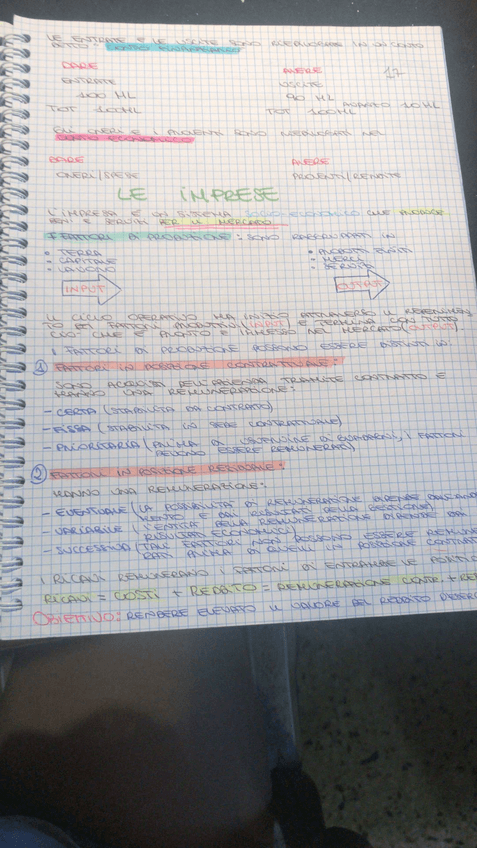 LE ENTRATE E LE USCITE SONO RIEPILOGATE IN UN CONTO
DETTO:
DARE AVERE 17
ENTRATE USCITE
100 ML 90 ML AVANZO 10 ML
TOT 100ML TOT 100ML
GLI ONERI E I PROVENTI SONO RIEPILOGATI NEL
CONTO ECONOMICO
DARE AVERE
ONERI/SPESE PROVENTI/RENDITE
LE IMPRESE
L'IMPRESA È UN SISTEMA SOCIO-ECONOMICO CHE PRODUCE
BENI E SERVIZI PER IL MERCATO
I FATTORI DI PRODUZIONE: SONO RAGGRUPPATI IN
• TERRA • PRODOTTI FINITI
• CAPITALE • MERCI
• LAVORO • SERVIZI
INPUT OUTPUT
IL CICLO OPERATIVO HA INIZIO ATTRAVERSO IL REPERIMEN
TO DEI FATTORI PRODUTTIVI (INPUT) E TERMINA CON TUTTO
CIÒ CHE È PRONTO E IMMESSO NEL MERCATO (OUTPUT).
I FATTORI DI PRODUZIONE POSSONO ESSERE DISTINTI IN:
1 FATTORI IN POSIZIONE CONTRATTUALE:
SONO ACQUISITI DELL'AZIENDA TRAMITE CONTRATTO E
HANNO UNA REMUNERAZIONE:
- CERTA (STABILITA DA CONTRATTO)
- FISSA (STABILITA IN SEDE CONTRATTUALE)
- PRIORITARIA (PRIMA DI OTTENERE DI GUADAGNI, I FATTORI
DEVONO ESSERE REMUNERATI)
2 FATTORI IN POSIZIONE RESIDUALE:
HANNO UNA REMUNERAZIONE:
- EVENTUALE (LA POSSIBILITÀ DI REMUNERAZIONE DIPENDE
MENTE E DAI RISULTATI DELLA GESTIONE)
- VARIABILE (L'ENTITÀ DELLA REMUNERAZIONE DIPENDE DAI
RISULTATI ECONOMICI)
- SUCCESSIVA (TALI FATTORI NON POSSONO ESSERE REMUNE
RATI PRIMA DI QUELLI IN POSIZIONE
I RICAVI REMUNERANO I FATTORI DI ENTRAMBE LE
RICAVI = COSTI + REDDITO = REMUNERAZIONE CONTR. +
OBIETTIVO: RENDERE ELEVATO IL VALORE DEL REDDITO